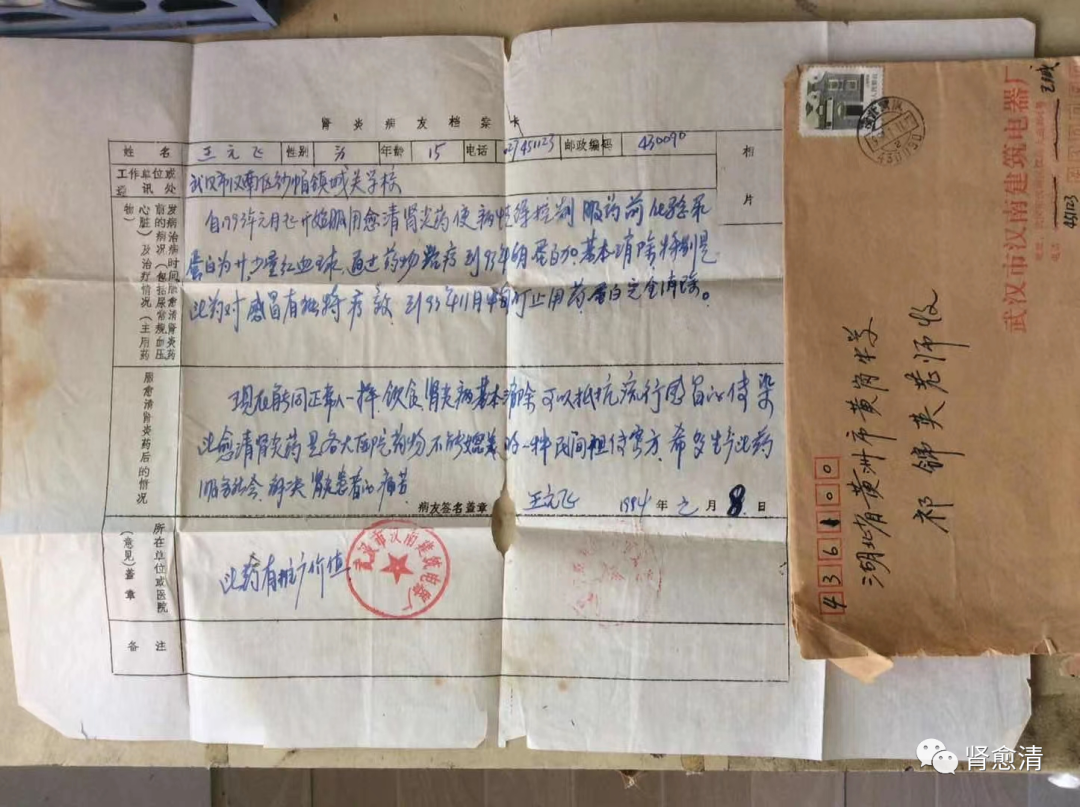 肾炎病友档案卡
姓名 王元飞 性别 年龄 15 电话 027451123 邮政编码 430090
相片
工作单位或通讯处 武汉市汉南区纱帽镇城关学校
发病治病时间原愈清肾炎药前的病情况(包括尿常规血压心脏)及治疗情况(主用药物)
自1993年元月起开始服用愈清肾炎药使病情得控制 服药前化验尿
蛋白为廿少量红血球,通过药物治疗到93年6月蛋白加基本消除特别是
此药对感冒有独特疗效,到93年11月中旬可止用药,蛋白完全消除。
服愈清肾炎药后的情况
现在能同正常人一样饮食,肾炎病基本消除可以抵抗流行感冒的传染
此愈清肾炎药是各大医院药物不能媲美的一种民间祖传密方,希多生产此药
服务社会,解决肾炎患者的痛苦。
病友签名盖章 王元飞 1994年元月8日
所在单位或医院(意见)盖章
此药有推广价值
武汉市汉南建筑电器厂
备注
武汉市汉南建筑电器厂
451123
430090
湖北省黄洲市黄岗中学
祁锦英老师收
436100
肾愈清